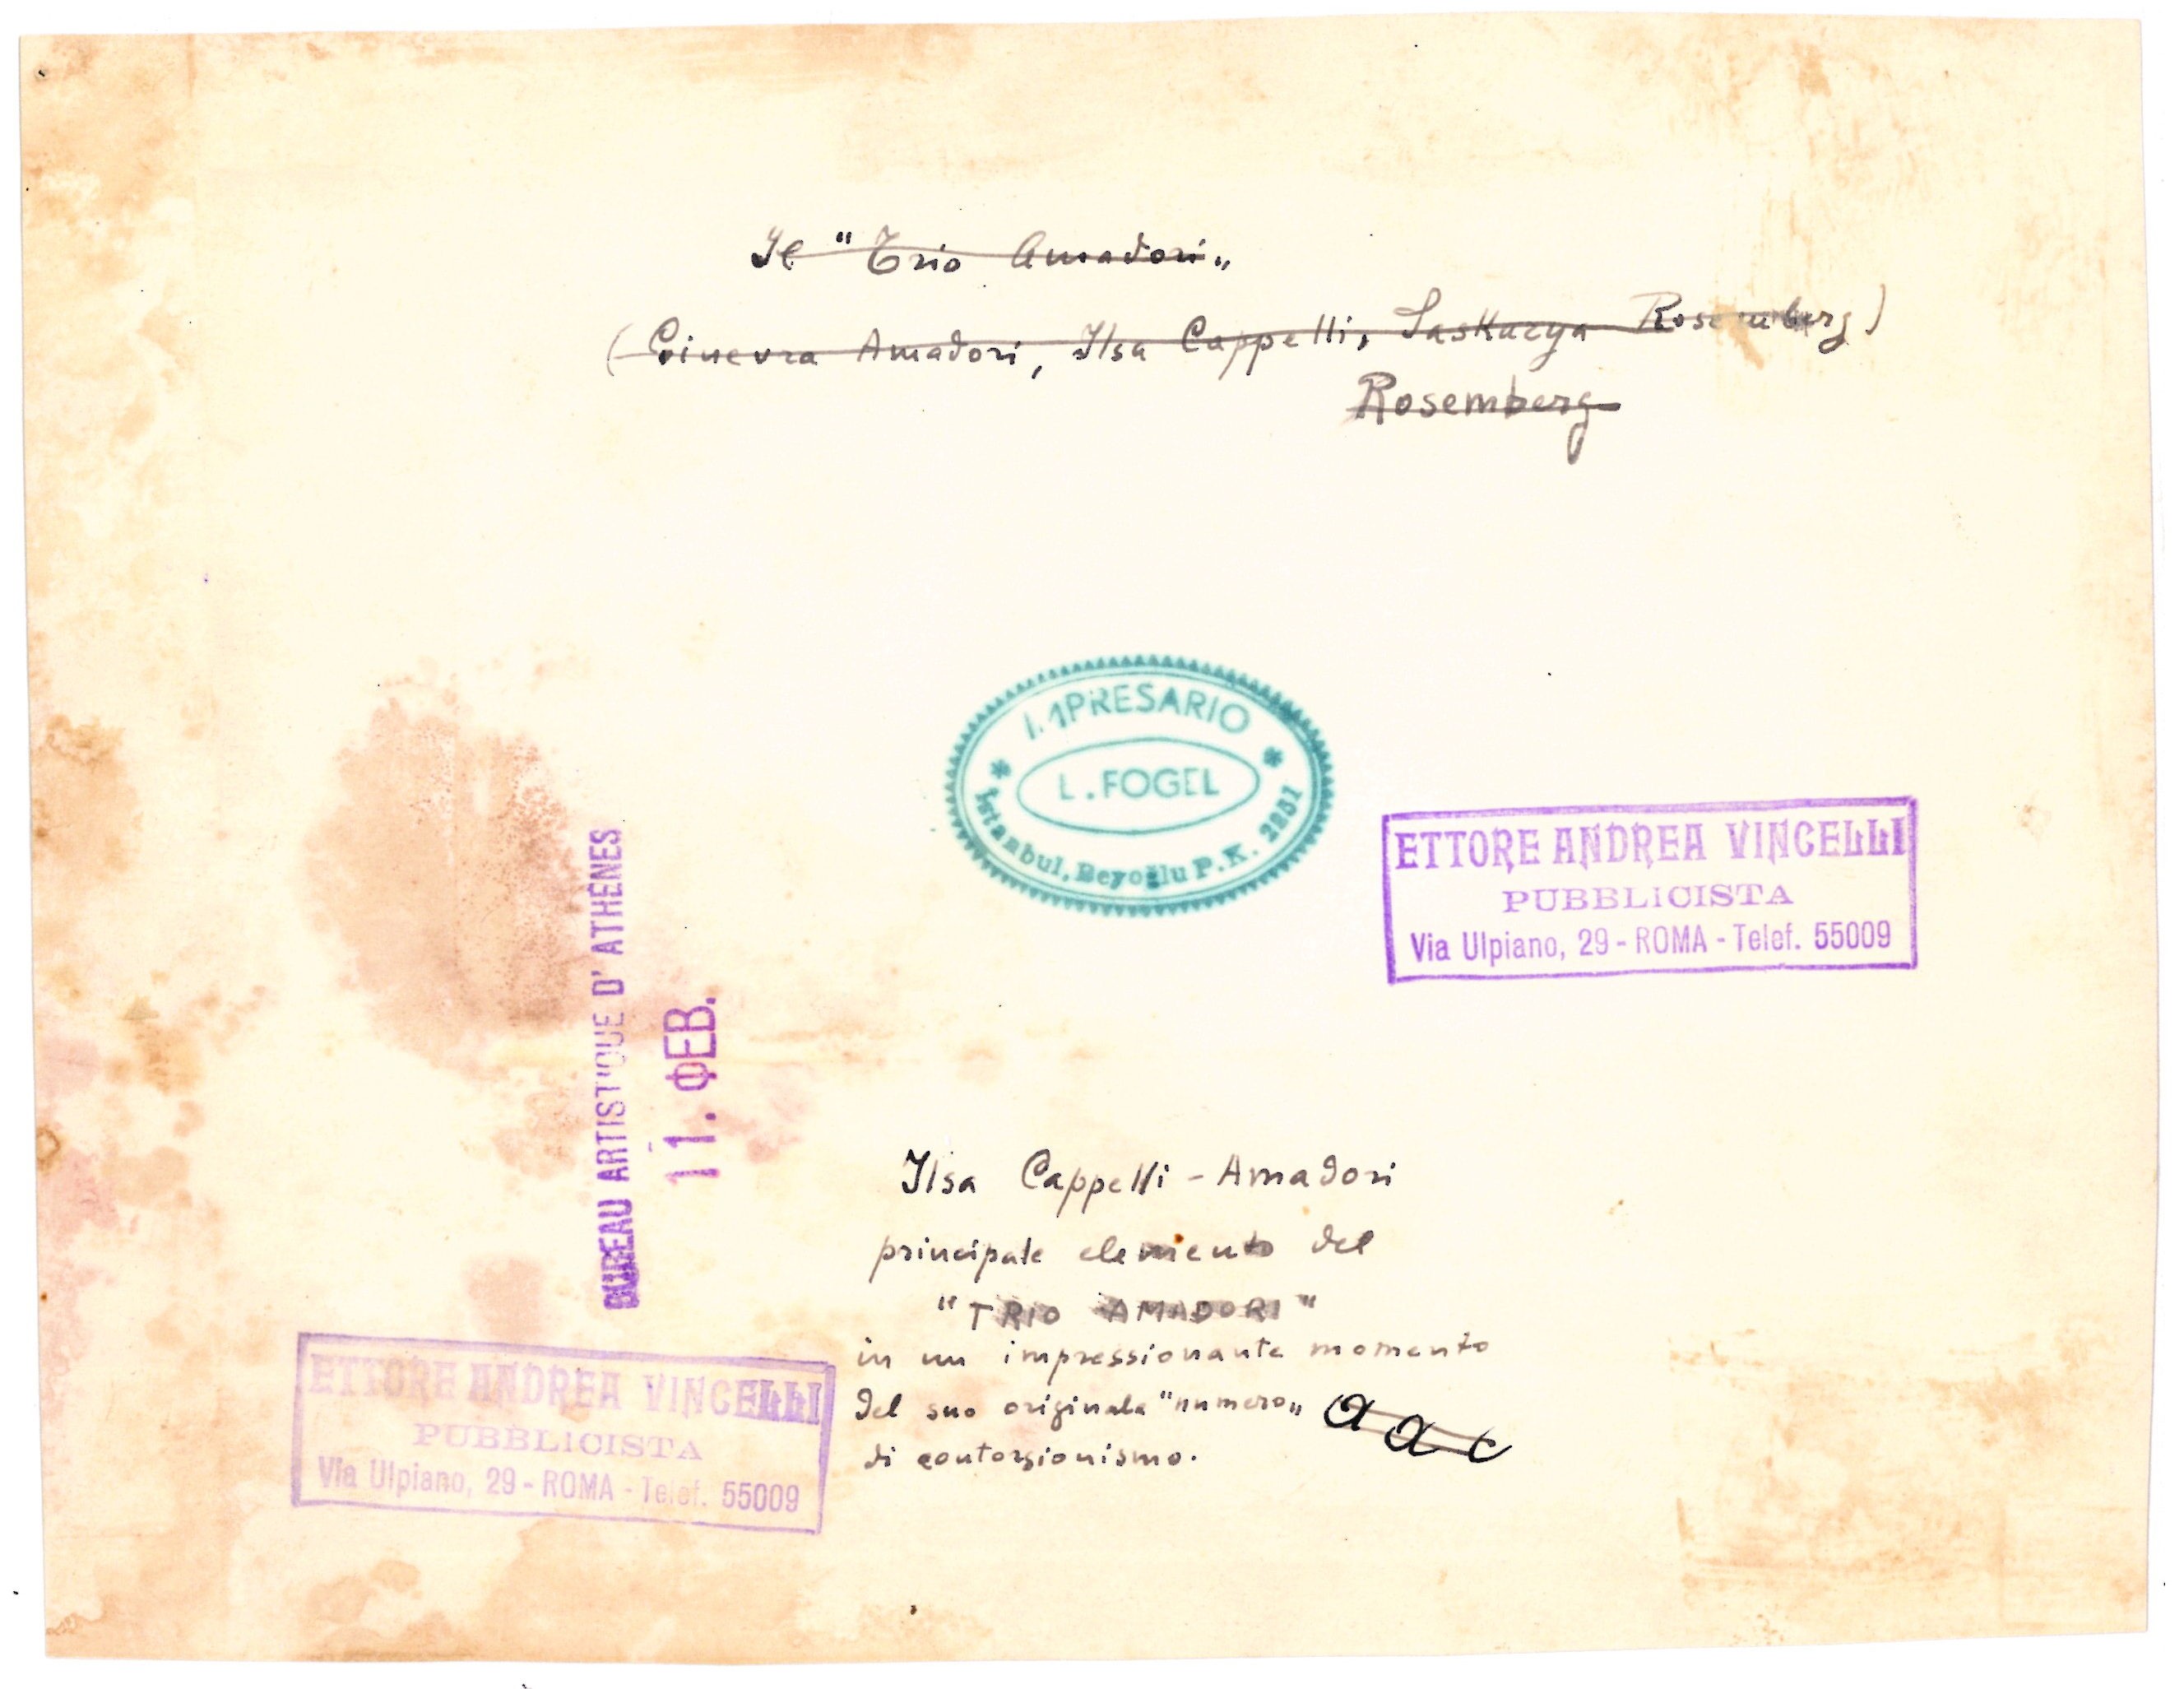 Il "Trio Amadori"
(Ginevra Amadori, Ilsa Cappelli, Saskarya Rosemberg)
Rosemberg
IMPRESARIO
L. FOGEL
Istanbul, Beyoğlu P.K. 2251
ETTORE ANDREA VINCELLI
PUBBLICISTA
Via Ulpiano, 29 - ROMA - Telef. 55009
BUREAU ARTISTIQUE D'ATHÈNES
11. ΦΕΒ.
Ilsa Cappelli - Amadori
principale elemento del
"TRIO AMADORI"
in un impressionante momento
del suo originale "numero"
di contorsionismo.
a a c
ETTORE ANDREA VINCELLI
PUBBLICISTA
Via Ulpiano, 29 - ROMA - Telef. 55009